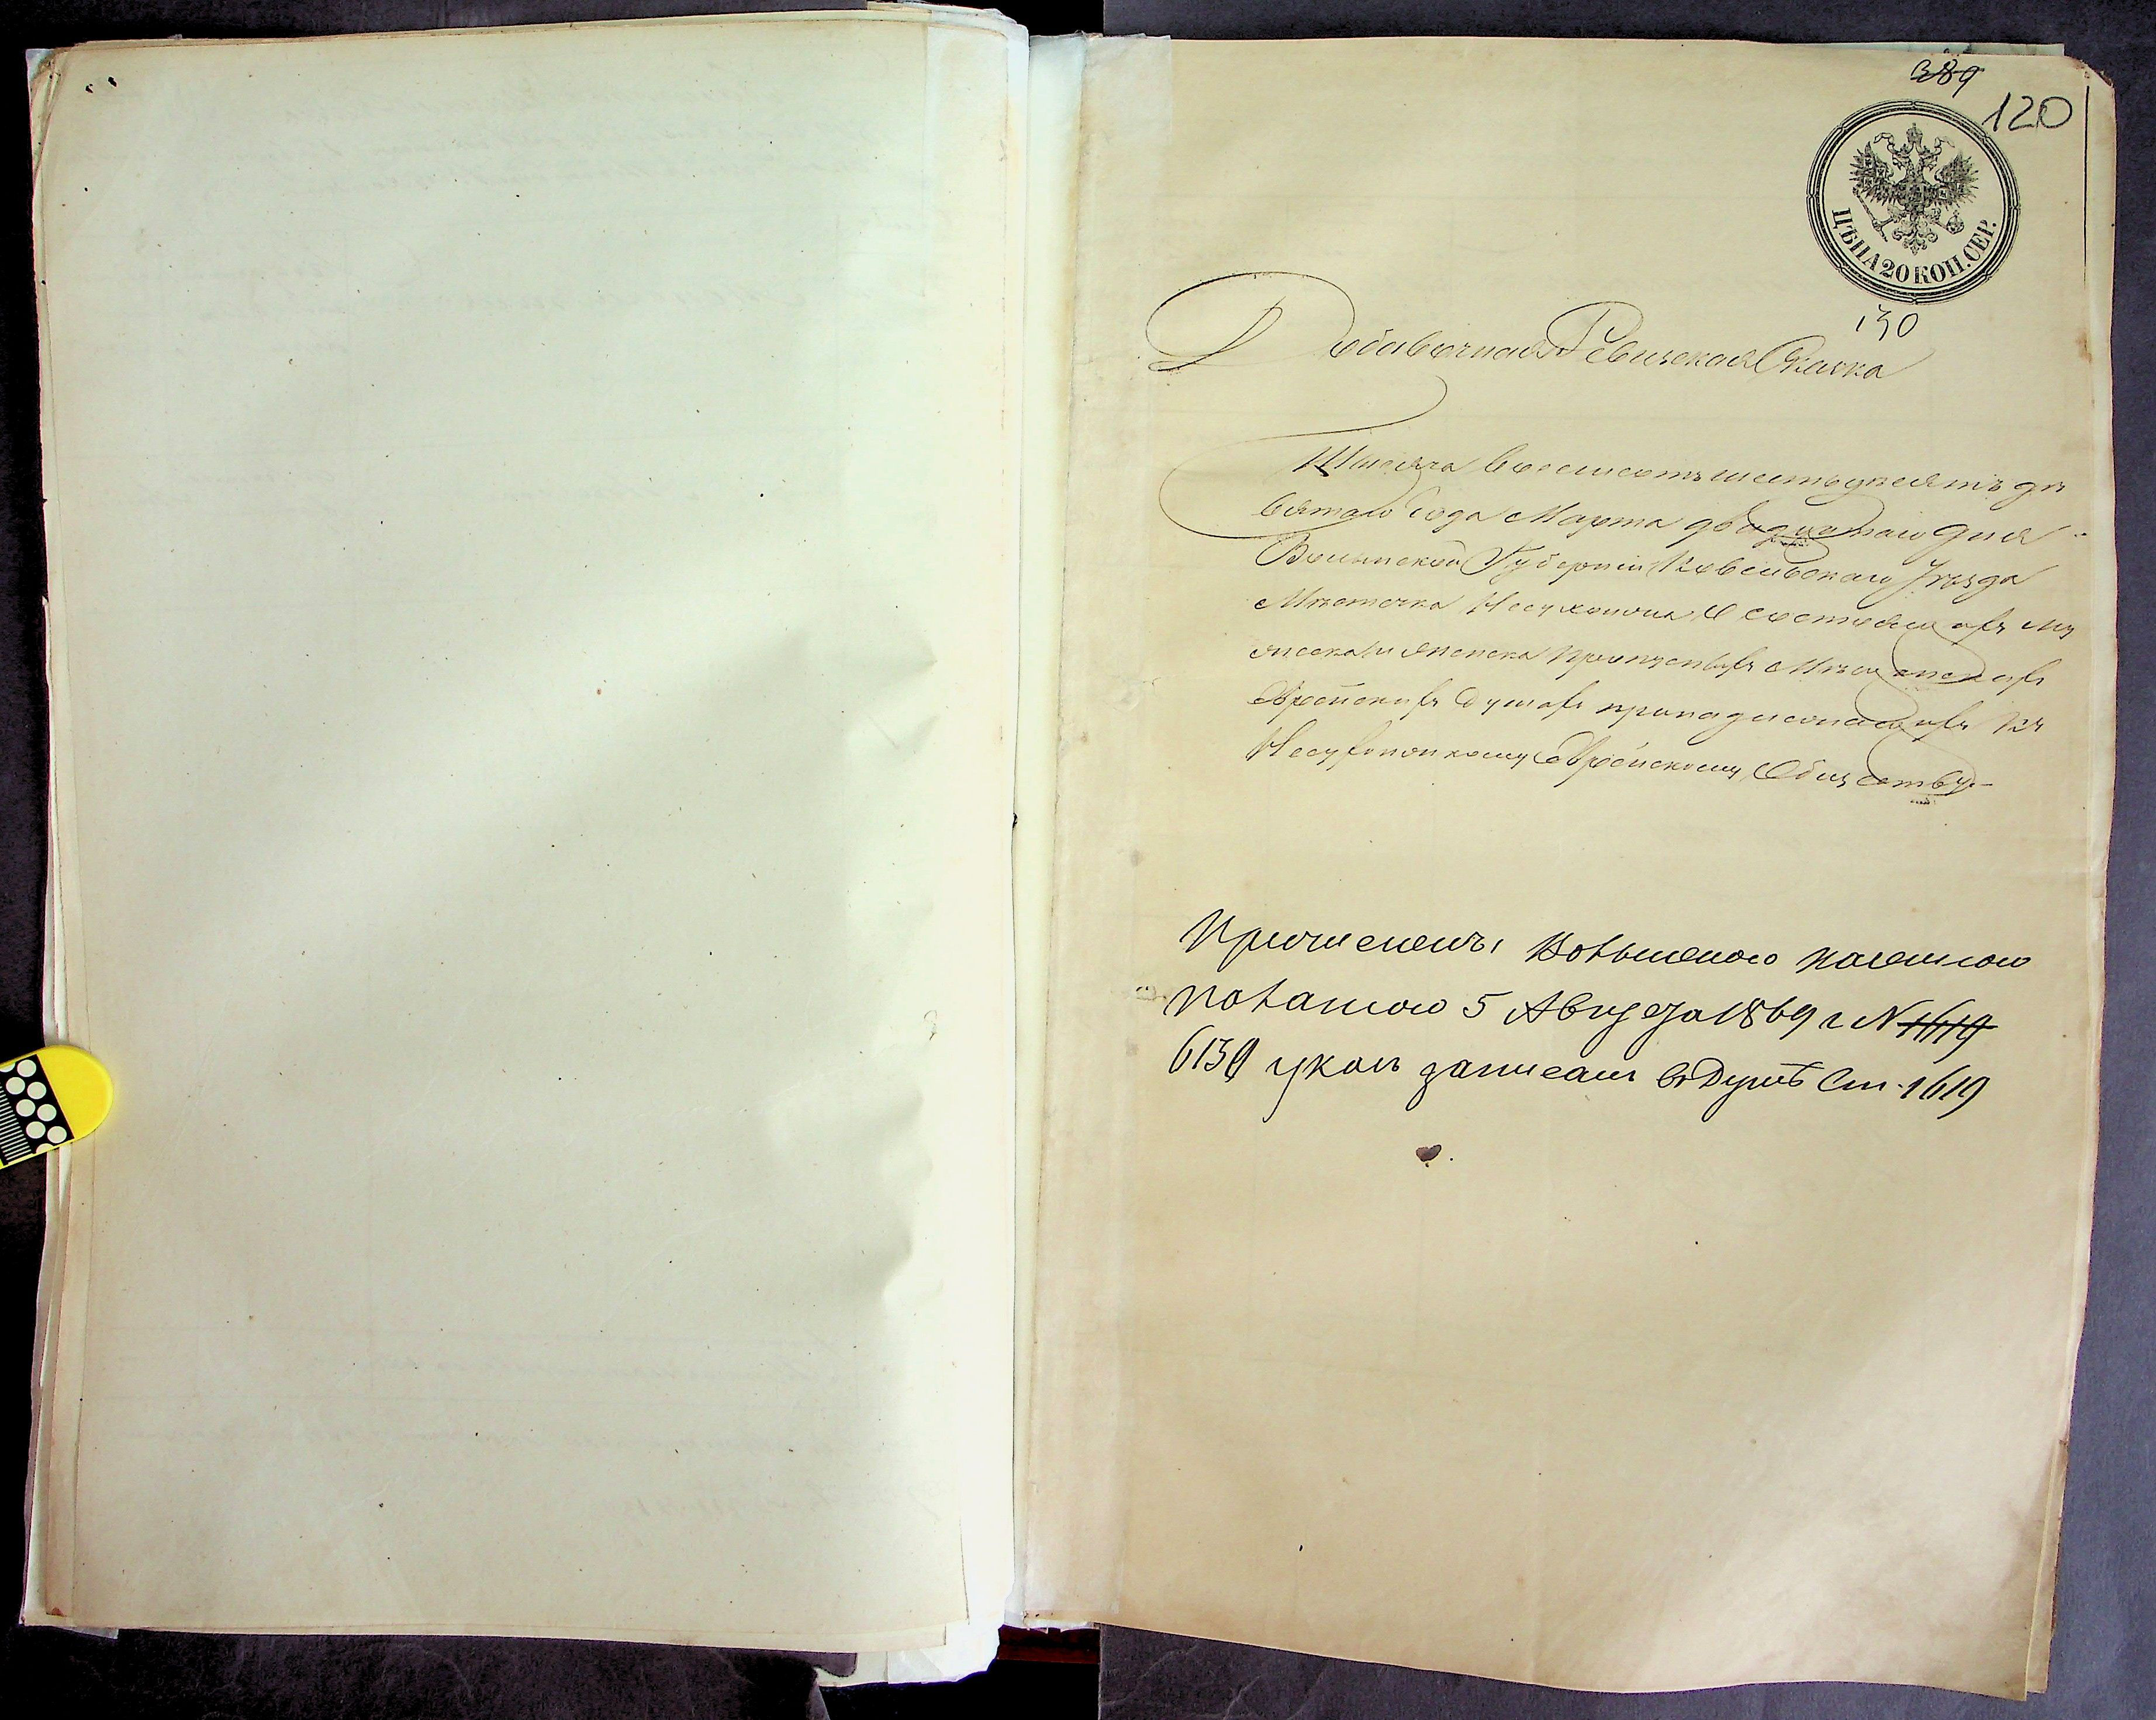 389
120
ЦѢНА 20 КОП. СЕР.
130
Добавочная Ревизская Сказка
Тысяча восемсотъ шестьдесятъ де
вятаго года Марта двадцатаго дня
Волынской Губерніи Ковельскаго Уѣзда
Мѣстечка Несухоижа О состоящихъ му
жеска и женска Мѣщанскихъ
Еврейскихъ душахъ принадлежащихъ къ
Несухоижскому Еврейскому Обществу
Волынской Казенной
Палатою 5 Августа 1869 г N 1619
6130 указ записан в Души Ст. 1619